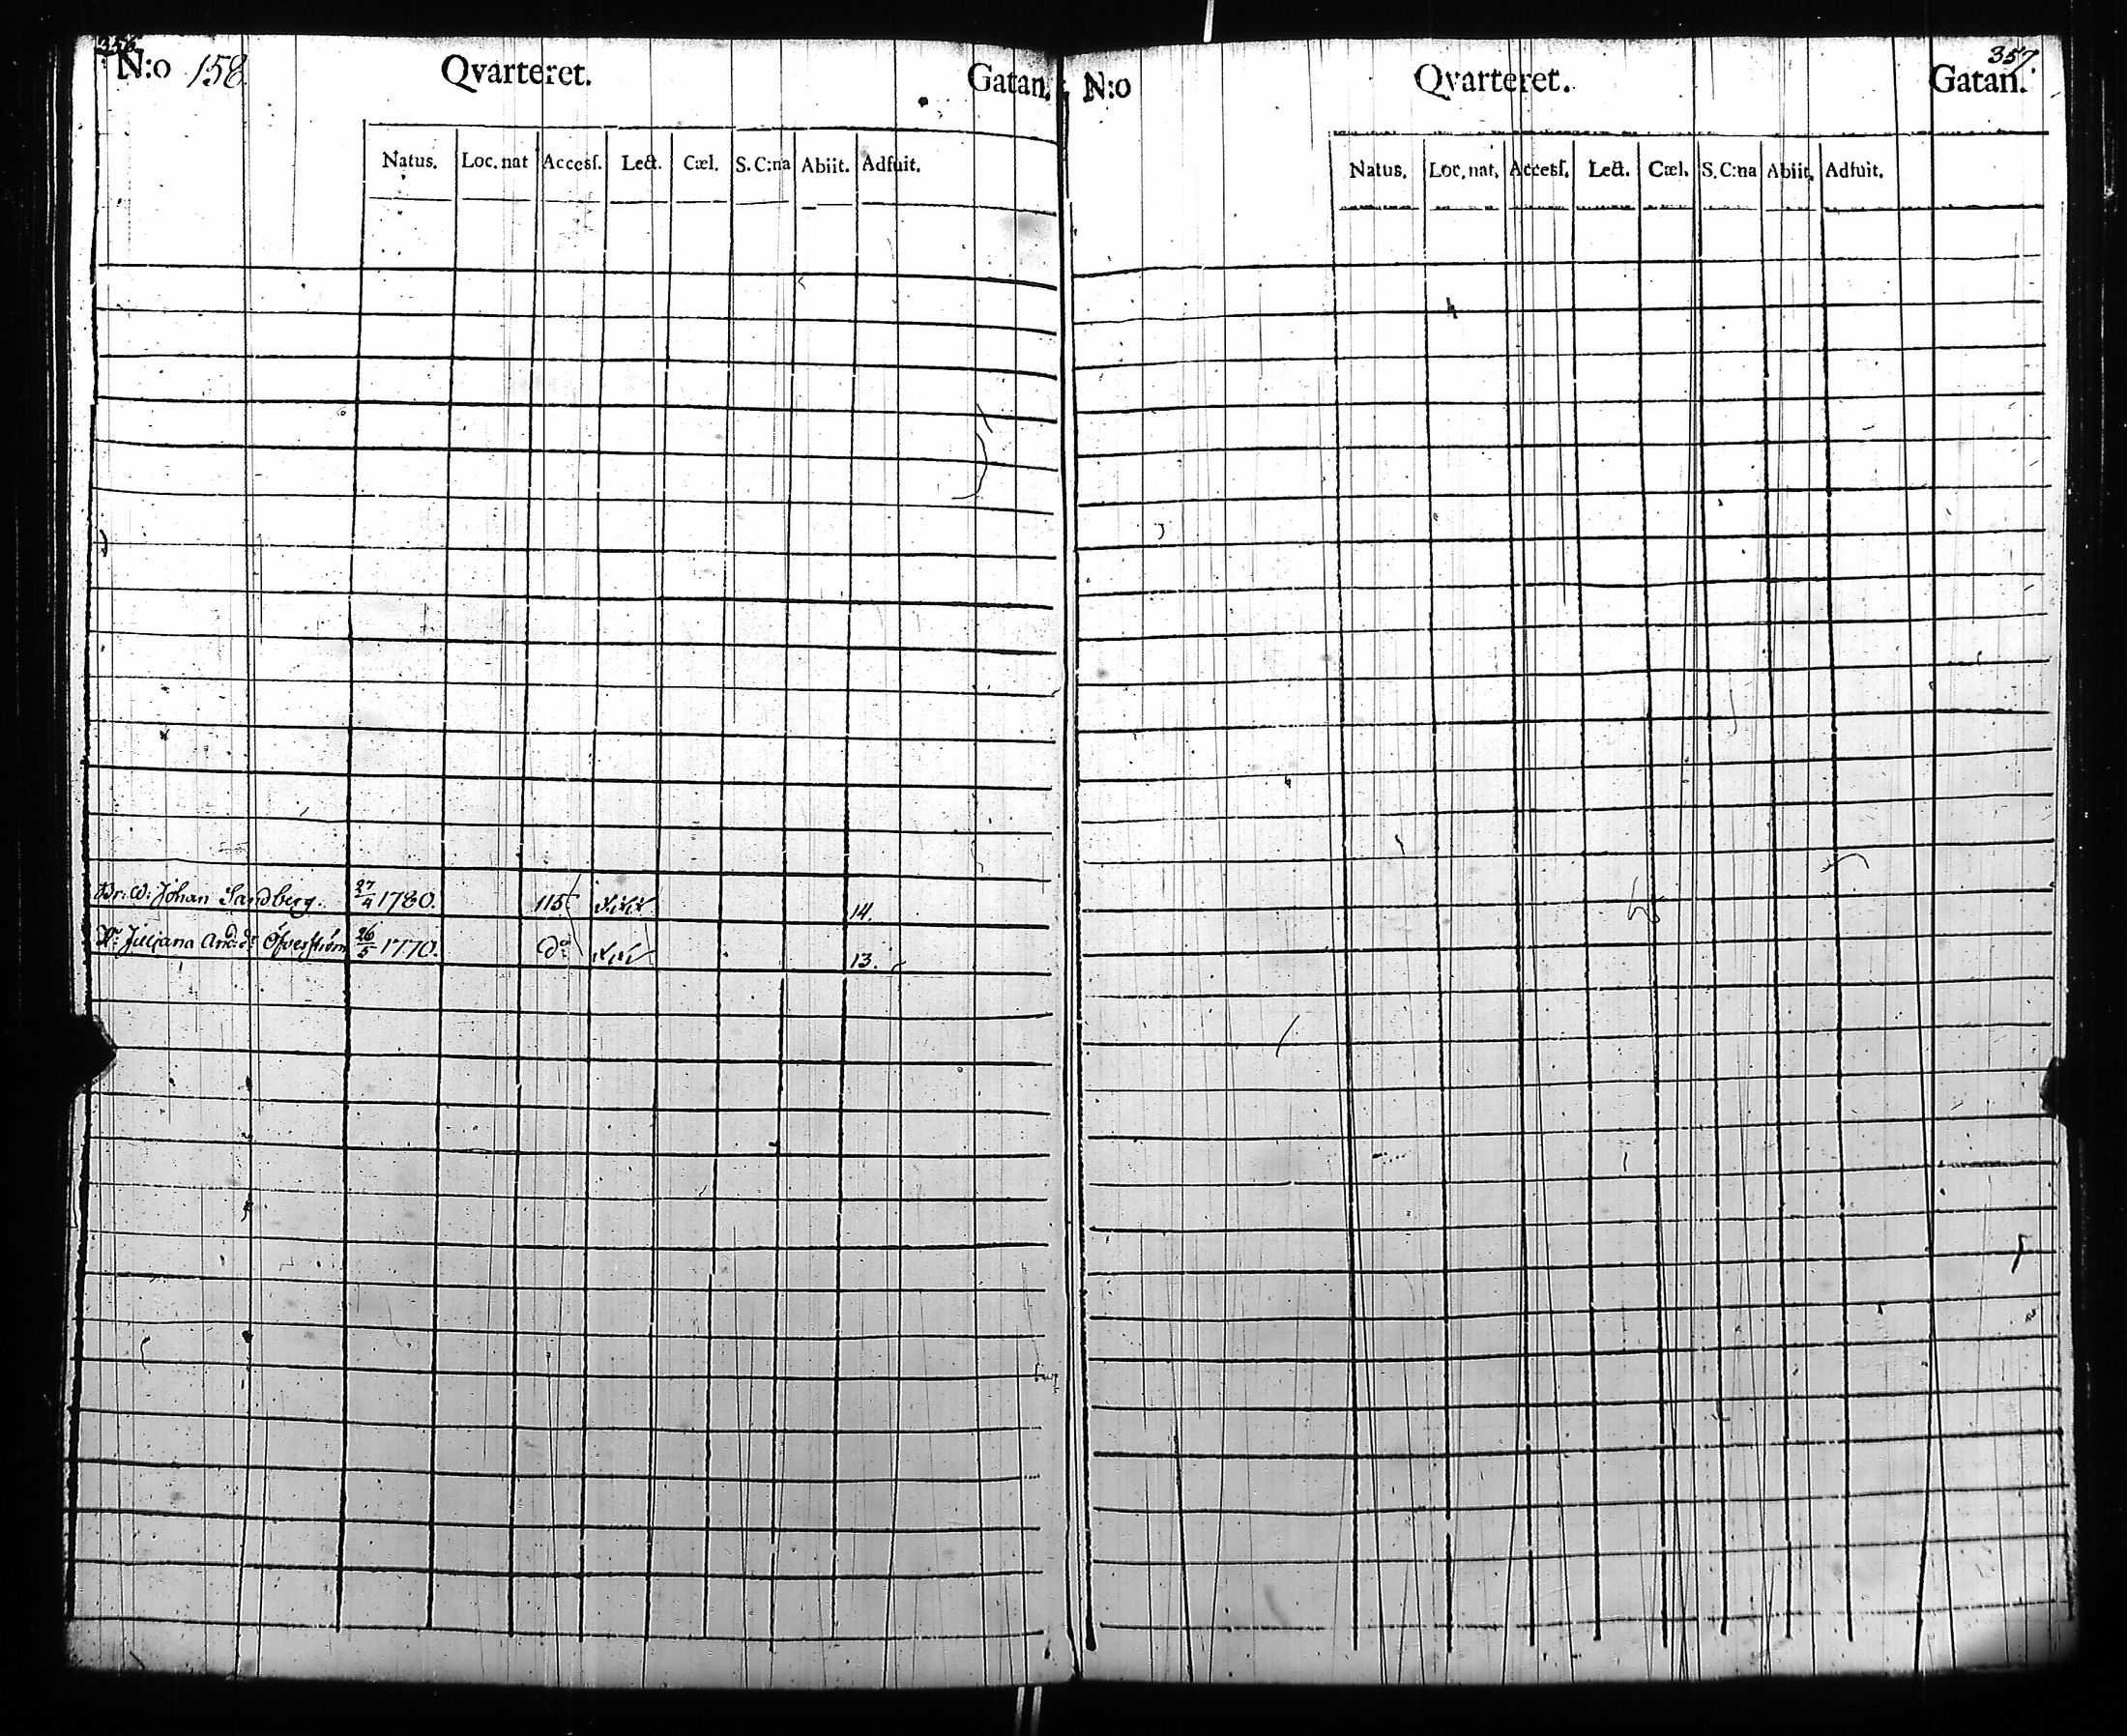 356
N:o 158. Qvarteret. Gatan.
Natus. Loc. nat Accesſ. Lect. Cæl. S. C:na Abiit. Adfuit.
Br: W: Johan Sandberg. 27/4 1780. 115 14.
Juliana And:dr Öfverström 26/5 1770. Do 13.
357.
N:o Qvarteret. Gatan.
Natus. Loc. nat. Accesſ. Lect. Cæl. S. C:na Abiit. Adfuit.